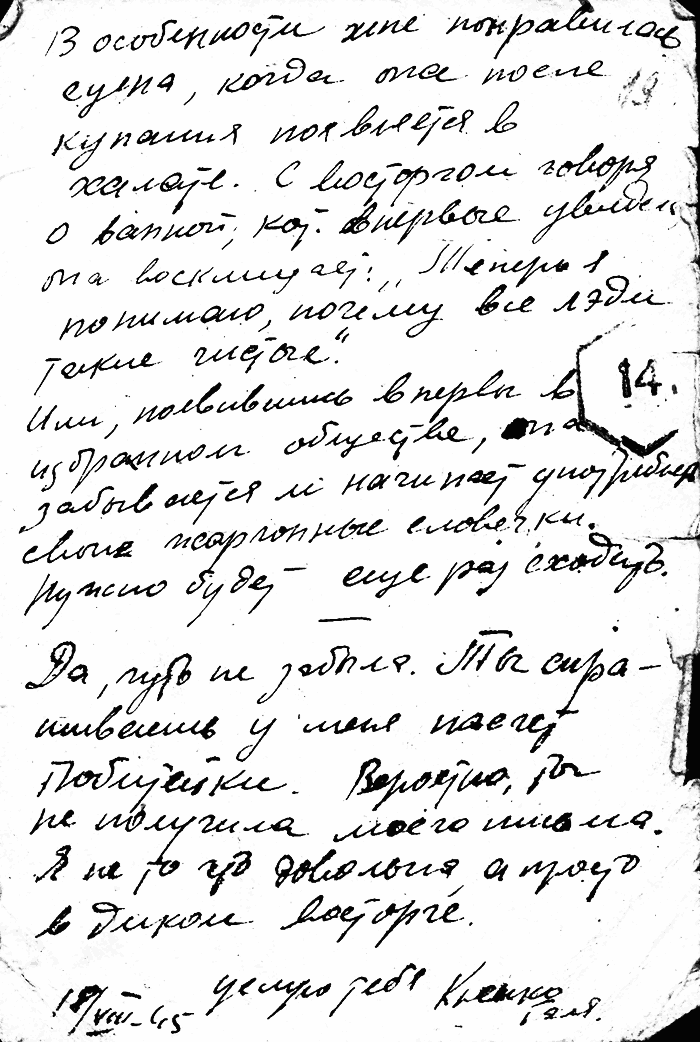 В особенности мне понравилась
сцена, когда она после
19
купания появляется в
халате. С восторгом говоря
о ванной, кот. впервые увидела,
она восклицает: „Теперь я
понимаю, почему все лэди
такие чистые."
14.
Или, появившись впервы в
избранном обществе, она
забывается и начинает употреблять
свои жаргонные словечки.
Нужно будет еще раз сходить.
Да, чуть не забыла. Ты спра-
шиваешь у меня насчет
Вероятно, ты
не получила моего письма.
Я не то что довольна, а просто
в диком восторге.
целую тебя
18/VIII-45 Галя.